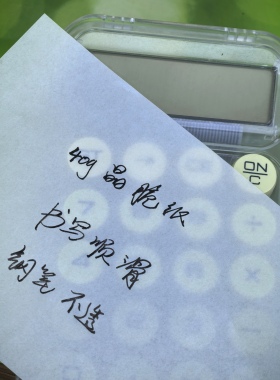 40g 晶脆纸
书写顺滑
钢笔不透
ON/C